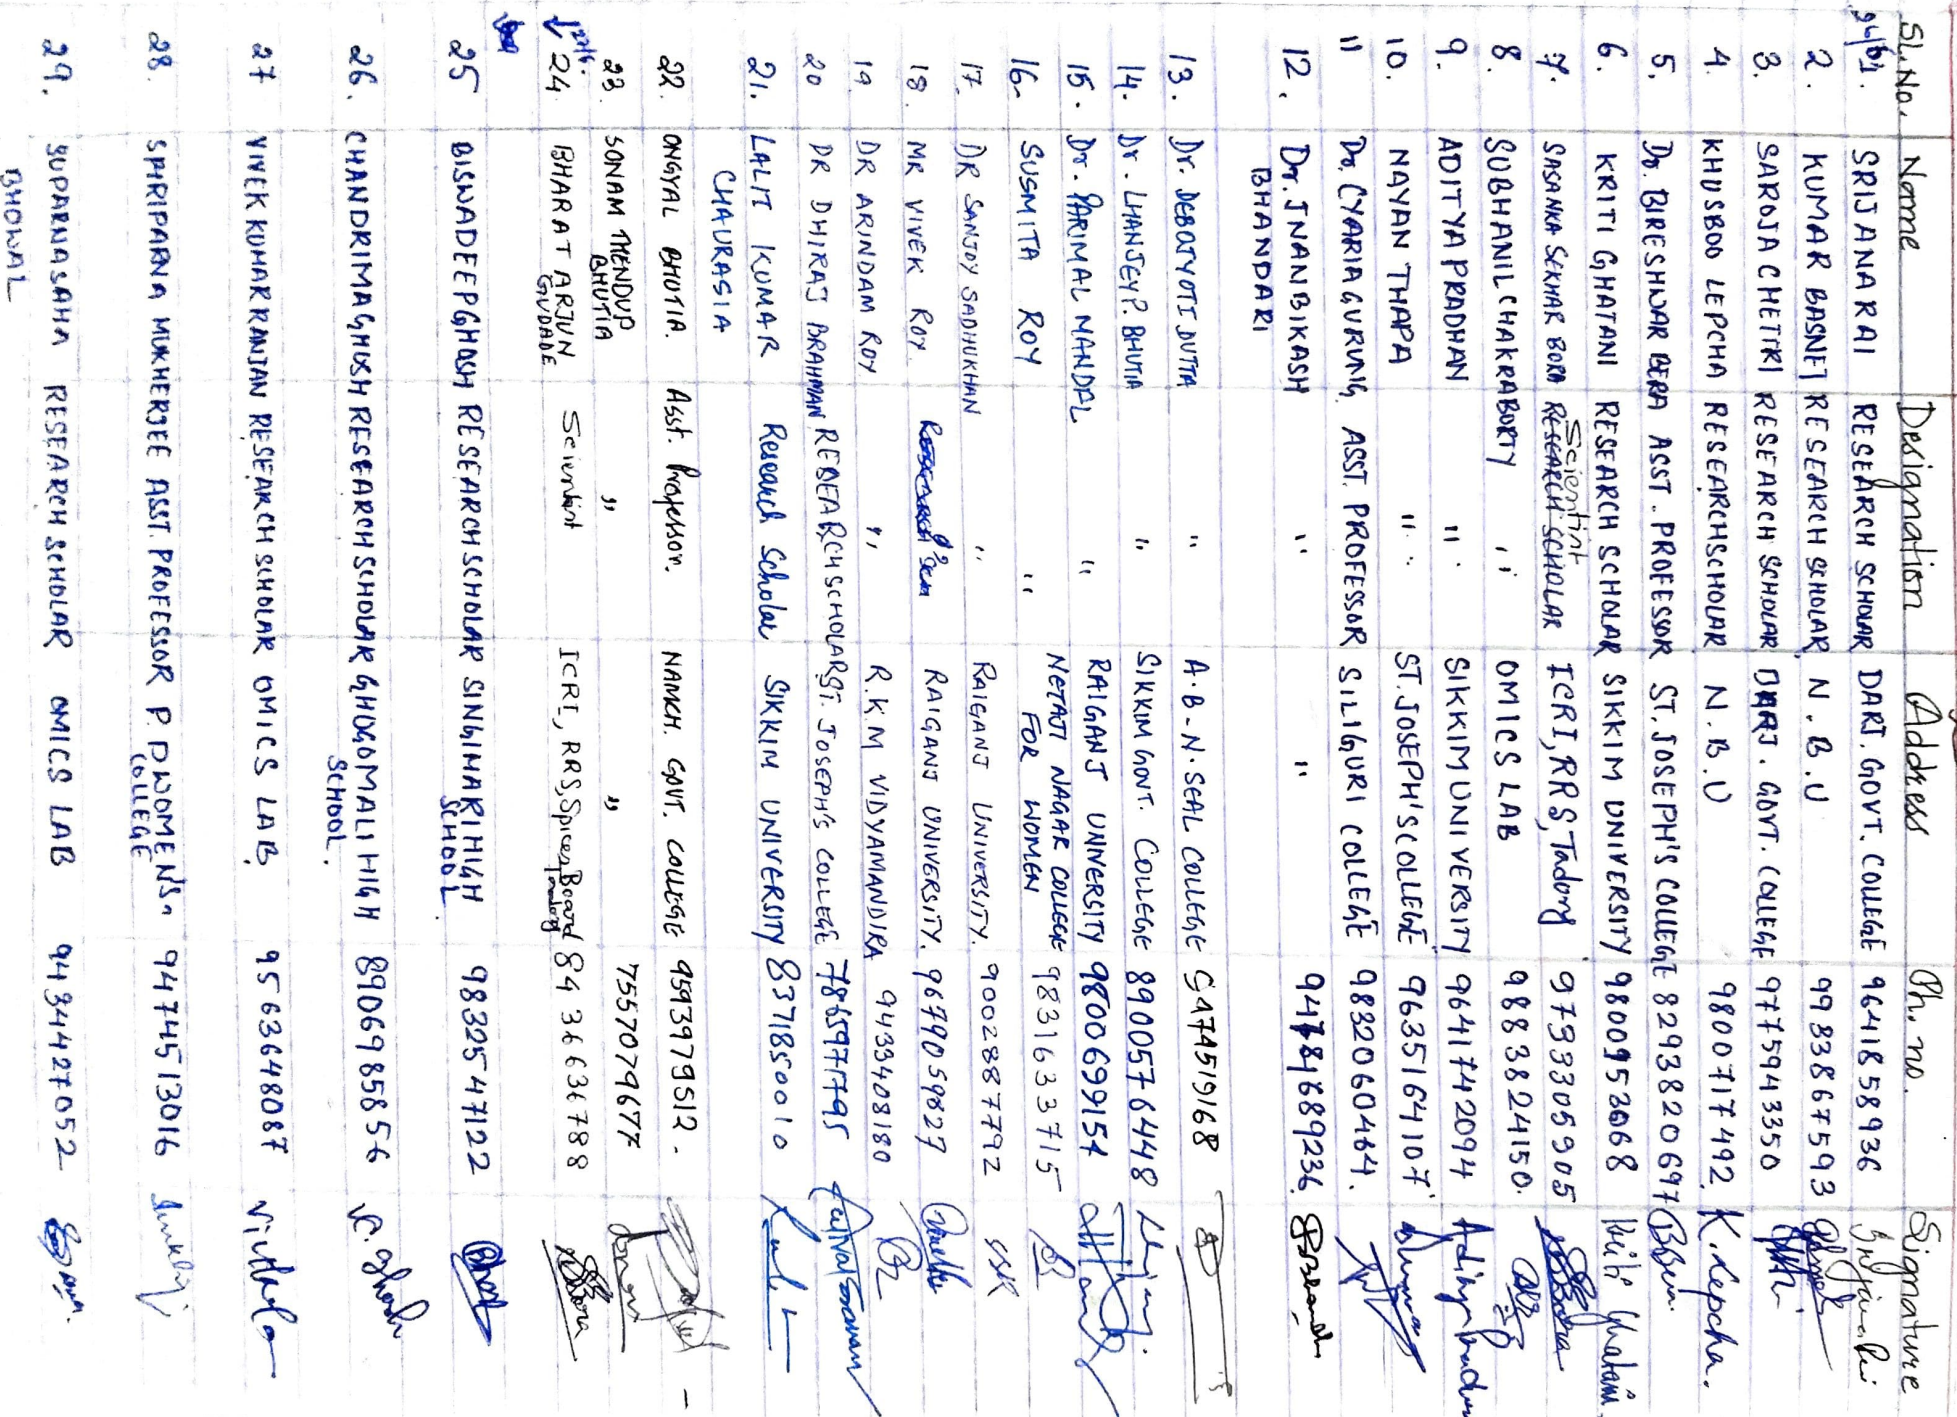 Sl. No. Name Designation Address Ph. no. Signature
1. SRIJANA RAI RESEARCH SCHOLAR DARJ. GOVT. COLLEGE 9641858936
2. KUMAR BASNET RESEARCH SCHOLAR N.B.U 9983867593
3. SAROJA CHETTRI RESEARCH SCHOLAR DARJ. GOVT. COLLEGE 9775943350
4. KHUSBOO LEPCHA RESEARCH SCHOLAR N.B.U 9800717492 K. Lepcha.
5. Dr. BIRESHWAR BERA ASST. PROFESSOR ST. JOSEPH'S COLLEGE 8293820697 BBera.
6. KRITI GHATANI RESEARCH SCHOLAR SIKKIM UNIVERSITY 9800953068 Kriti Ghatani
7. SASANKA SEKHAR BORA Scientist ICRI, RRS, Tadong 9733305905
8. SUBHANIL CHAKRABORTY " OMICS LAB 9883824150.
9. ADITYA PRADHAN " SIKKIM UNIVERSITY 9641742094 Aditya Pradhan
10. NAYAN THAPA " ST. JOSEPH'S COLLEGE 9635164107
11 Dr. CYARIA GURUNG ASST. PROFESSOR SILIGURI COLLEGE 9832060464.
12. Dr. JNAN BIKASH " " 9689236.
BHANDARI
13. Dr. DEBOJYOTI DUTTA " A.B.N. SEAL COLLEGE 9474519168
14. Dr. LHANJEY P. BHUTIA " SIKKIM GOVT. COLLEGE 8900576448
15. Dr. PARIMAL MANDAL " RAIGANJ UNIVERSITY 9800699154
16. SUSMITA ROY " NETAJI NAGAR COLLEGE 9831633715 SR
FOR WOMEN
17. DR SANJOY SADHUKHAN " RAIGANJ UNIVERSITY. 9002887792 SSK
18. MR VIVEK ROY RAIGANJ UNIVERSITY. 9679059827
19. DR ARINDAM ROY " R.K.M VIDYAMANDIRA 9433408180
20 DR DHIRAJ BRAHMAN RESEARCH SCHOLAR ST. JOSEPH'S COLLEGE 7865971795
21. LALIT KUMAR Research Scholar SIKKIM UNIVERSITY 8371850010
CHAURASIA
22. ONGYAL BHUTIA. Asst. Professor. NAMCH. GOVT. COLLEGE 9593979512.
23. SONAM THENDUP " " 7557079677
BHUTIA
24 BHARAT ARJUN Scientist ICRI, RRS, Spices Board 8436636788
GUDADE Tadong
25 BISWADEEP GHOSH RESEARCH SCHOLAR SINGIMARI HIGH 9832547122
SCHOOL
26. CHANDRIMA GHOSH RESEARCH SCHOLAR GHOGOMALI HIGH 8906985856 C. Ghosh
SCHOOL.
27 VIVEK KUMAR RANJAN RESEARCH SCHOLAR OMICS LAB 9563648087
28. SHRIPARNA MUKHERJEE ASST. PROFESSOR P. D WOMEN'S 9474513016
COLLEGE
29. SUPARNA SAHA RESEARCH SCHOLAR OMICS LAB 9434427052
BHOWAL